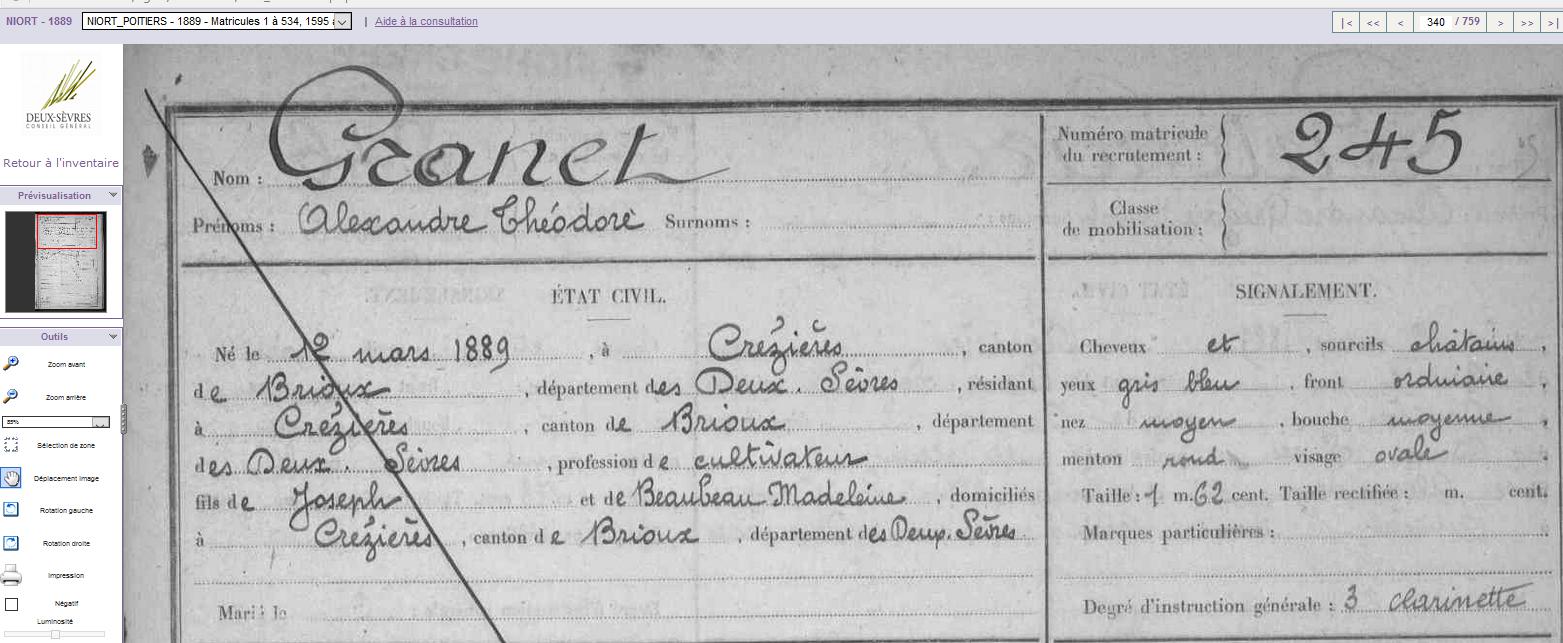 NIORT - 1889 NIORT_POITIERS - 1889 - Matricules 1 à 534, 1595 | Aide à la consultation |< << < 340 / 759 > >> >|
DEUX-SÈVRES
CONSEIL GÉNÉRAL
Retour à l'inventaire
Prévisualisation
Outils
Zoom avant
Zoom arrière
Sélection de zone
Déplacement image
Rotation gauche
Rotation droite
Impression
Négatif
Luminosité
Nom : Granet
Prénoms : Alexandre Théodore Surnoms :
Numéro matricule
du recrutement : 245
Classe
de mobilisation :
ÉTAT CIVIL.
Né le 12 mars 1889, à Crézières, canton
de Brioux, département des Deux. Sèvres, résidant
à Crézières, canton de Brioux, département
des Deux. Sèvres, profession de cultivateur
fils de Joseph et de Beaubeau Madeleine, domiciliés
à Crézières, canton de Brioux, département des Deux. Sèvres
Marié le
SIGNALEMENT.
Cheveux et, sourcils châtains,
yeux gris bleu, front ordinaire,
nez moyen, bouche moyenne,
menton rond visage ovale.
Taille : 1 m. 62 cent. Taille rectifiée : m. cent.
Marques particulières :
Degré d'instruction générale : 3 clarinette